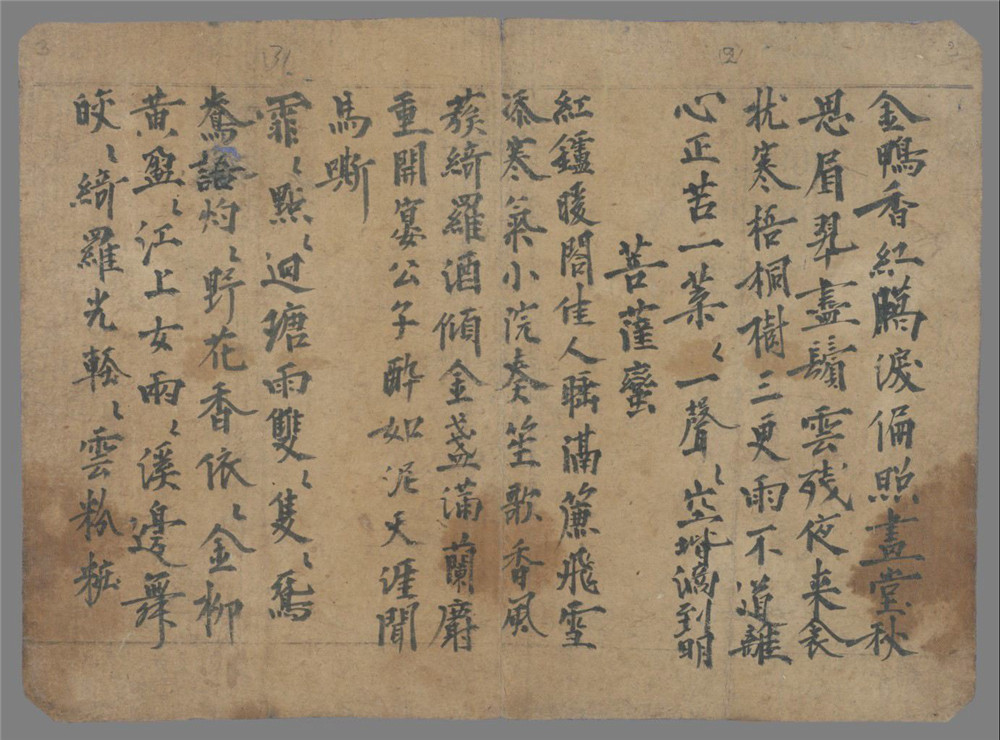 金鴨香紅臈淚偏照畫堂秋
思眉翠盡鬢雲残夜来衾
枕寒梧桐樹三更雨不道離
心正苦一葉〻一聲〻空堦滴到明
菩薩蠻
紅鑪暖閤佳人睡隔簾飛雪
添寒氣小院奏笙歌香風
蔟綺羅酒傾金盞滿蘭麝
重開宴公子醉如泥天涯聞
馬嘶
霏〻點〻迴塘雨雙〻隻〻鴛
鴦語灼〻野花香依〻金柳
黃盈〻江上女兩〻溪邊舞
皎〻綺羅光輕〻雲粉粧